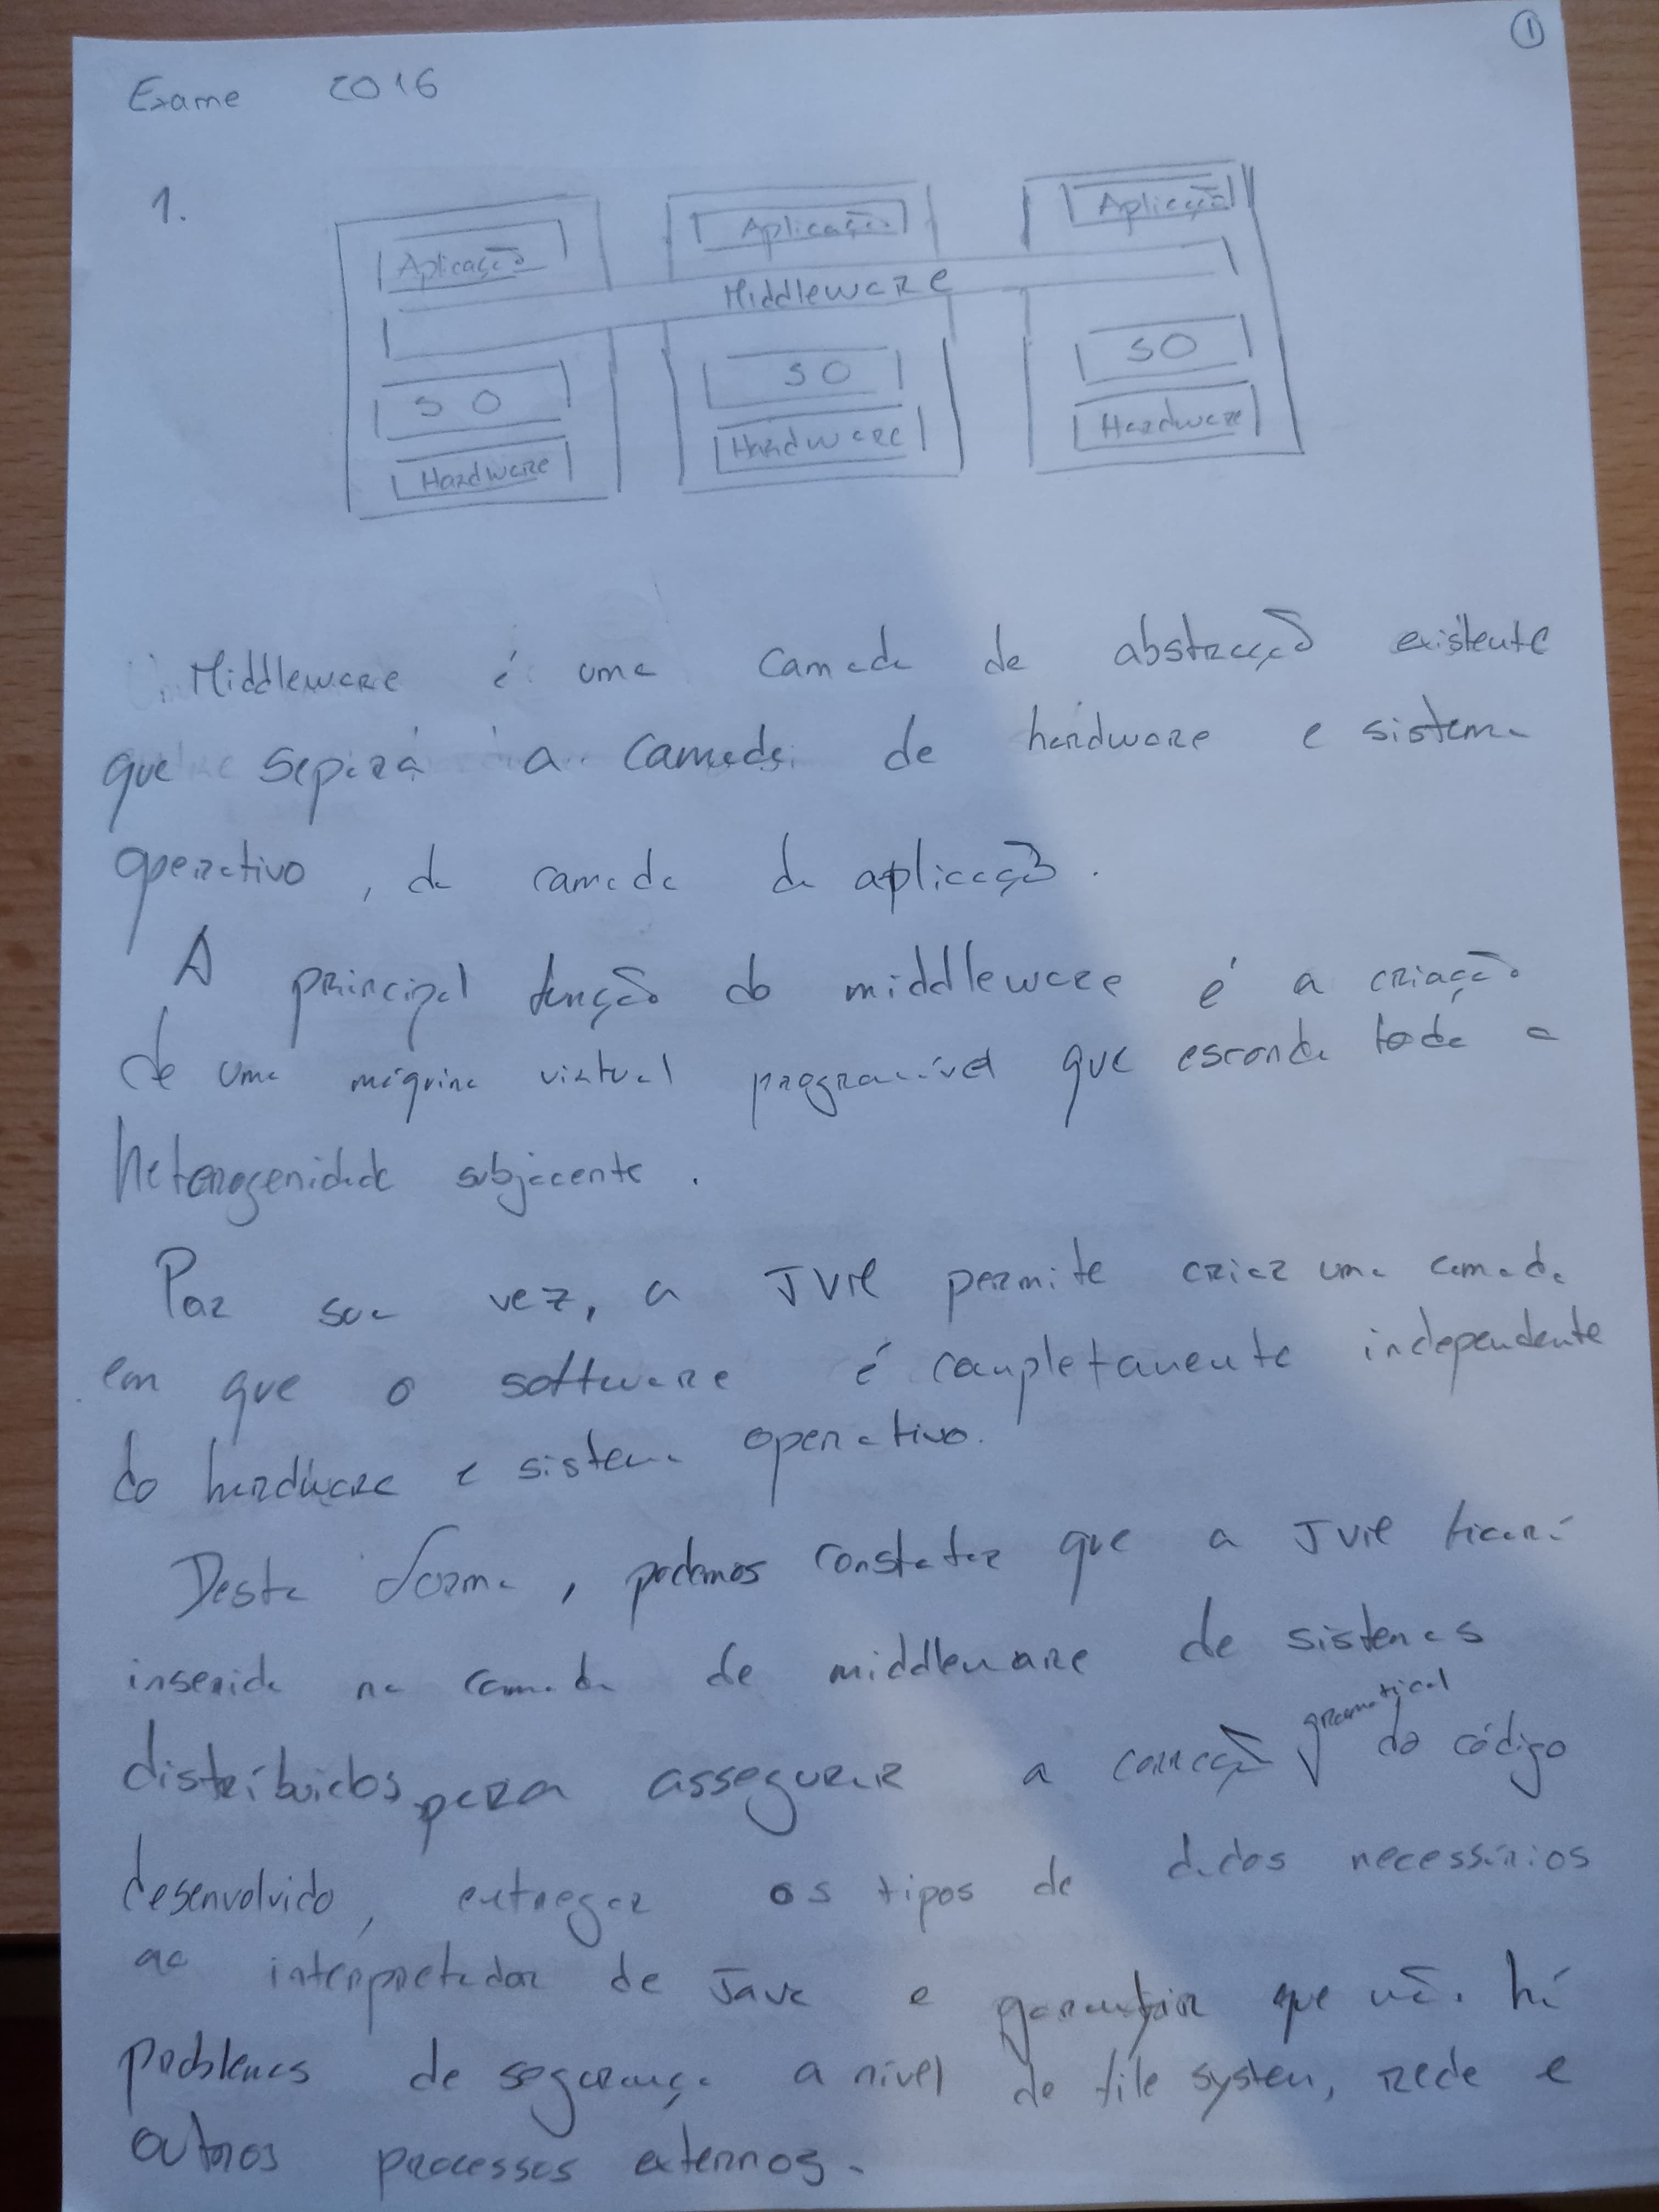 ①
Exame 2016
1.
Aplicação Aplicação Aplicação
Middleware
SO SO SO
Hardware Hardware Hardware
Middleware é uma camada de abstracção existente
que separa a camada de hardware e sistema
operativo, da camada da aplicação.
A principal função do middleware é a criação
de uma máquina virtual programável que esconda toda a
heterogenidade subjacente.
Por sua vez, a JVM permite criar uma camada
em que o software é completamente independente
do hardware e sistema operativo.
Desta forma, podemos constatar que a JVM ficará
inserida na camada de middleware de sistemas
distribuidos, para assegurar a correcção gramatical do código
desenvolvido, entregar os tipos de dados necessários
ao interpretador de Java e garantir que não há
problemas de segurança a nivel de file system, rede e
outros processos externos.